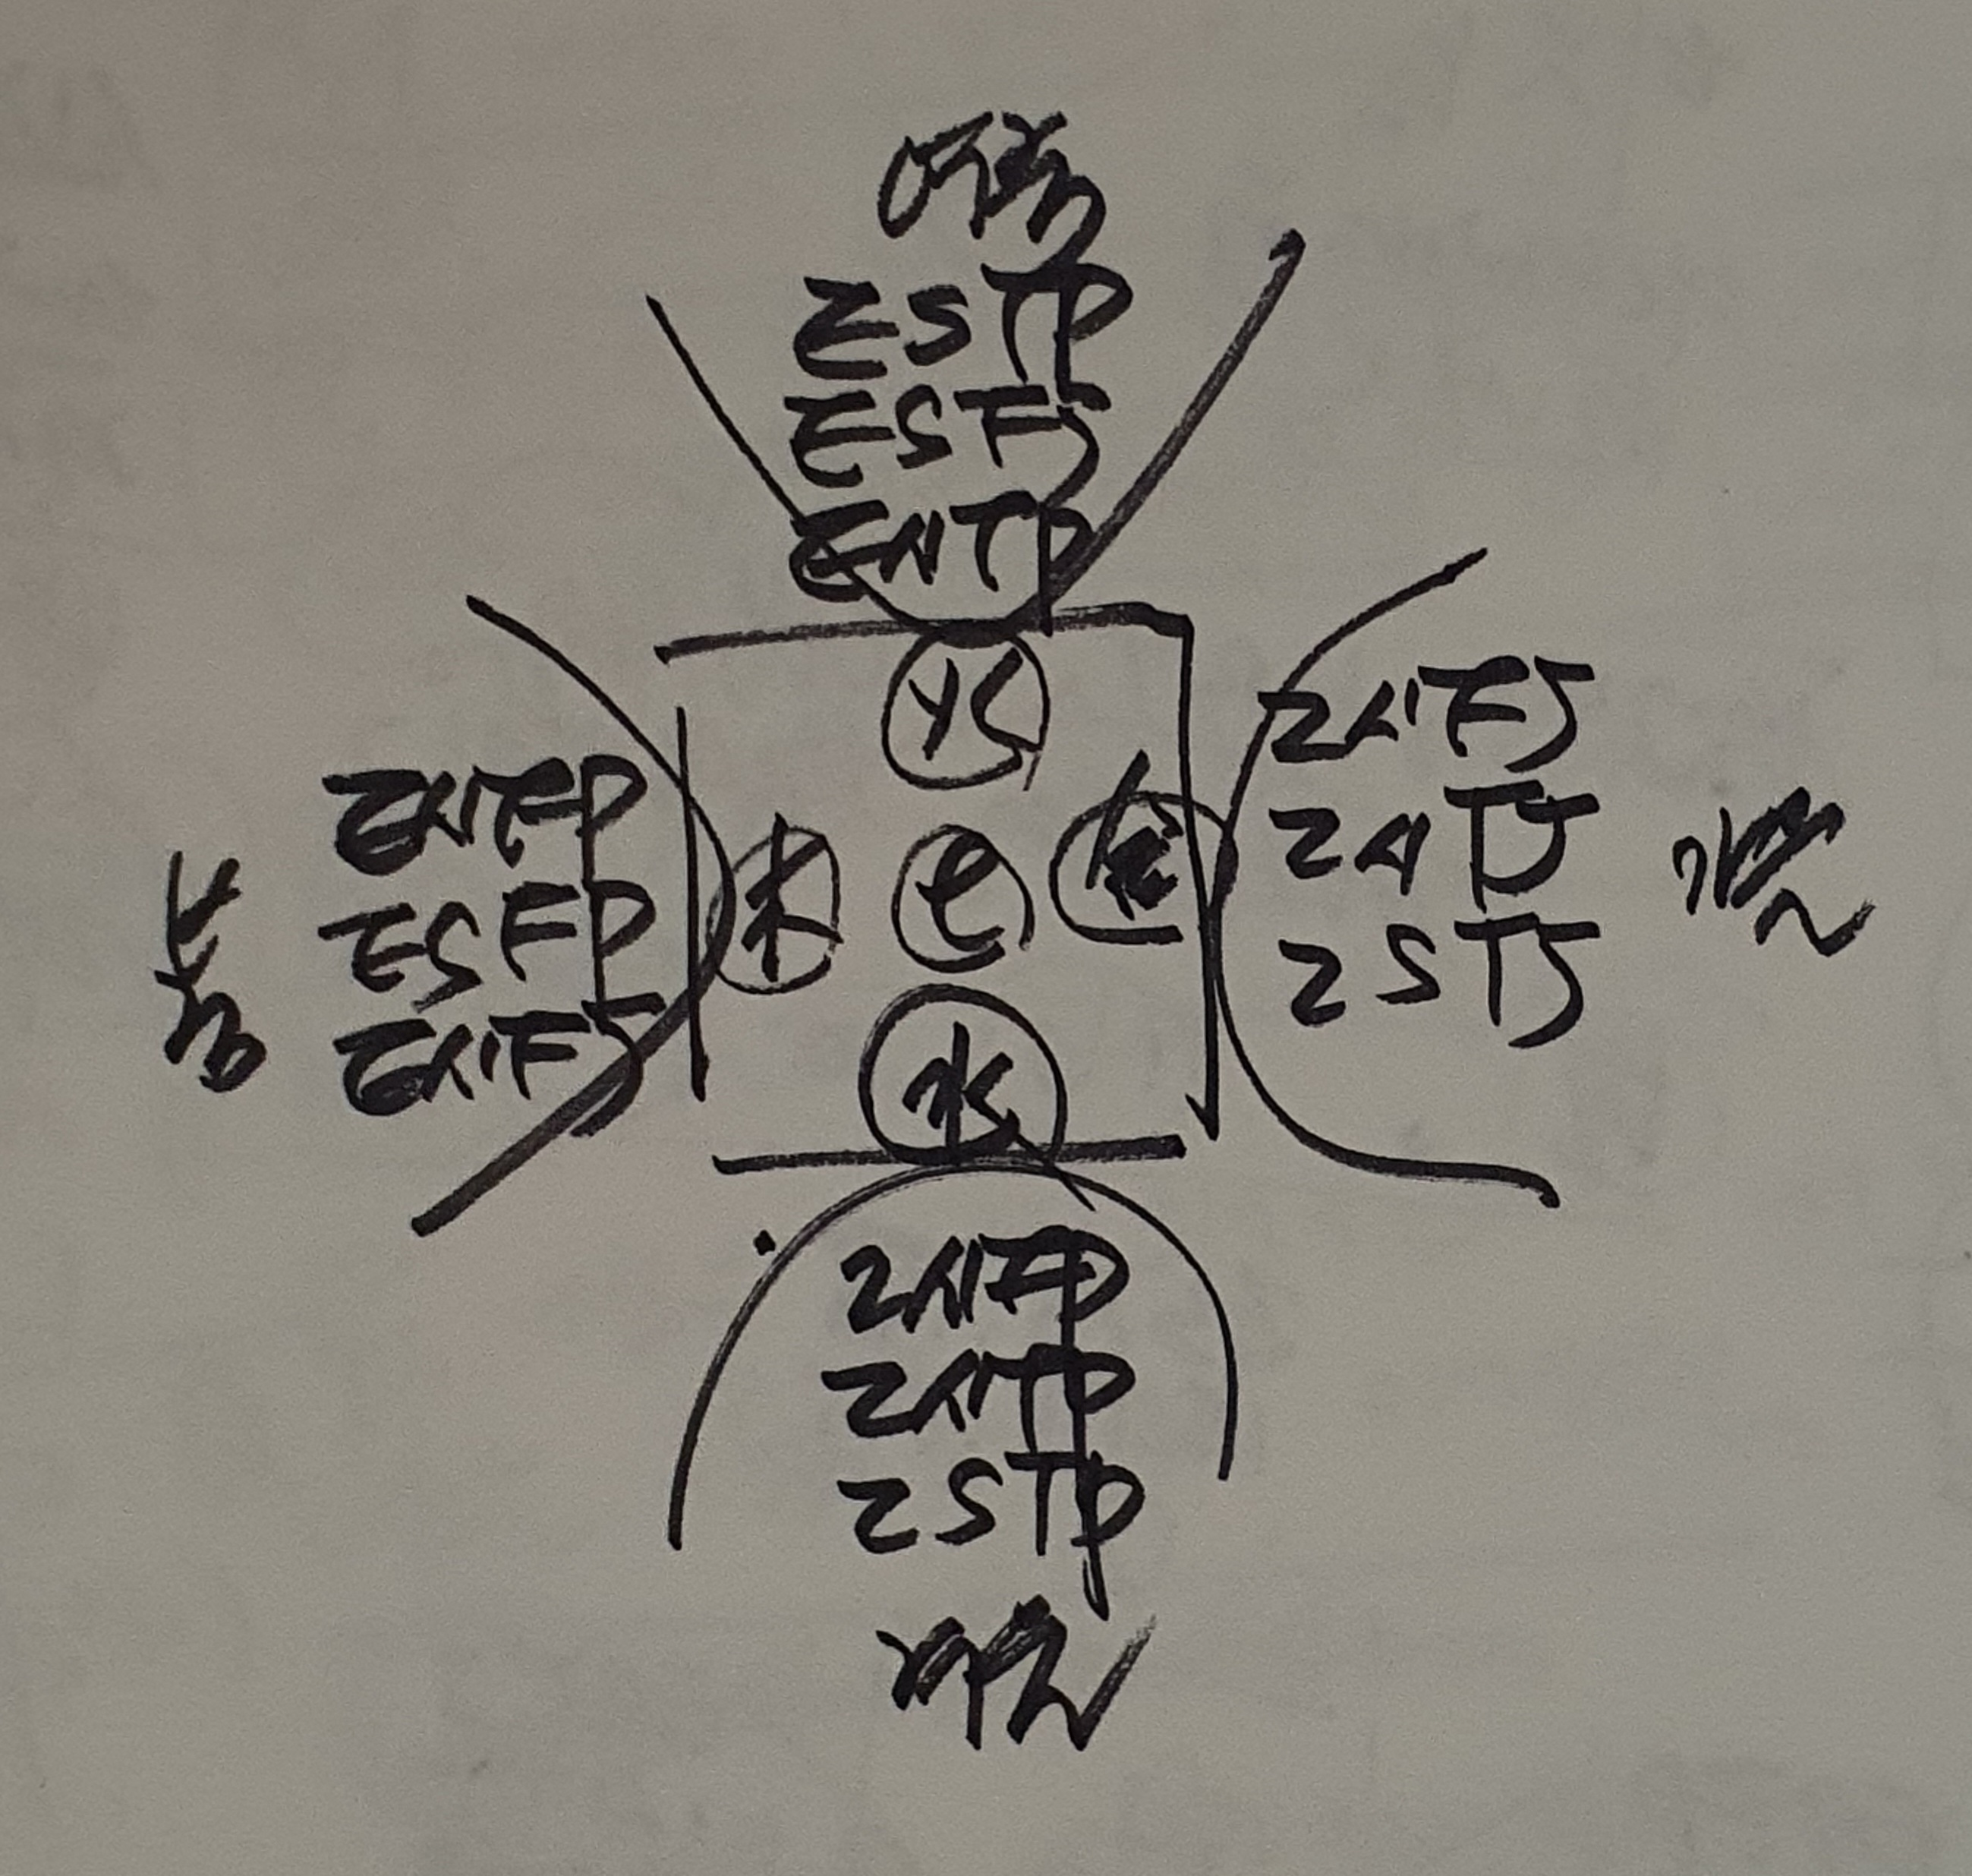 여름
ESTP
ESFJ
ENTP
火
봄
ENFP
ESFP
ENFJ
木
土
金
INFJ
INTJ
ISTJ
가을
水
INFP
INTP
ISTP
겨울